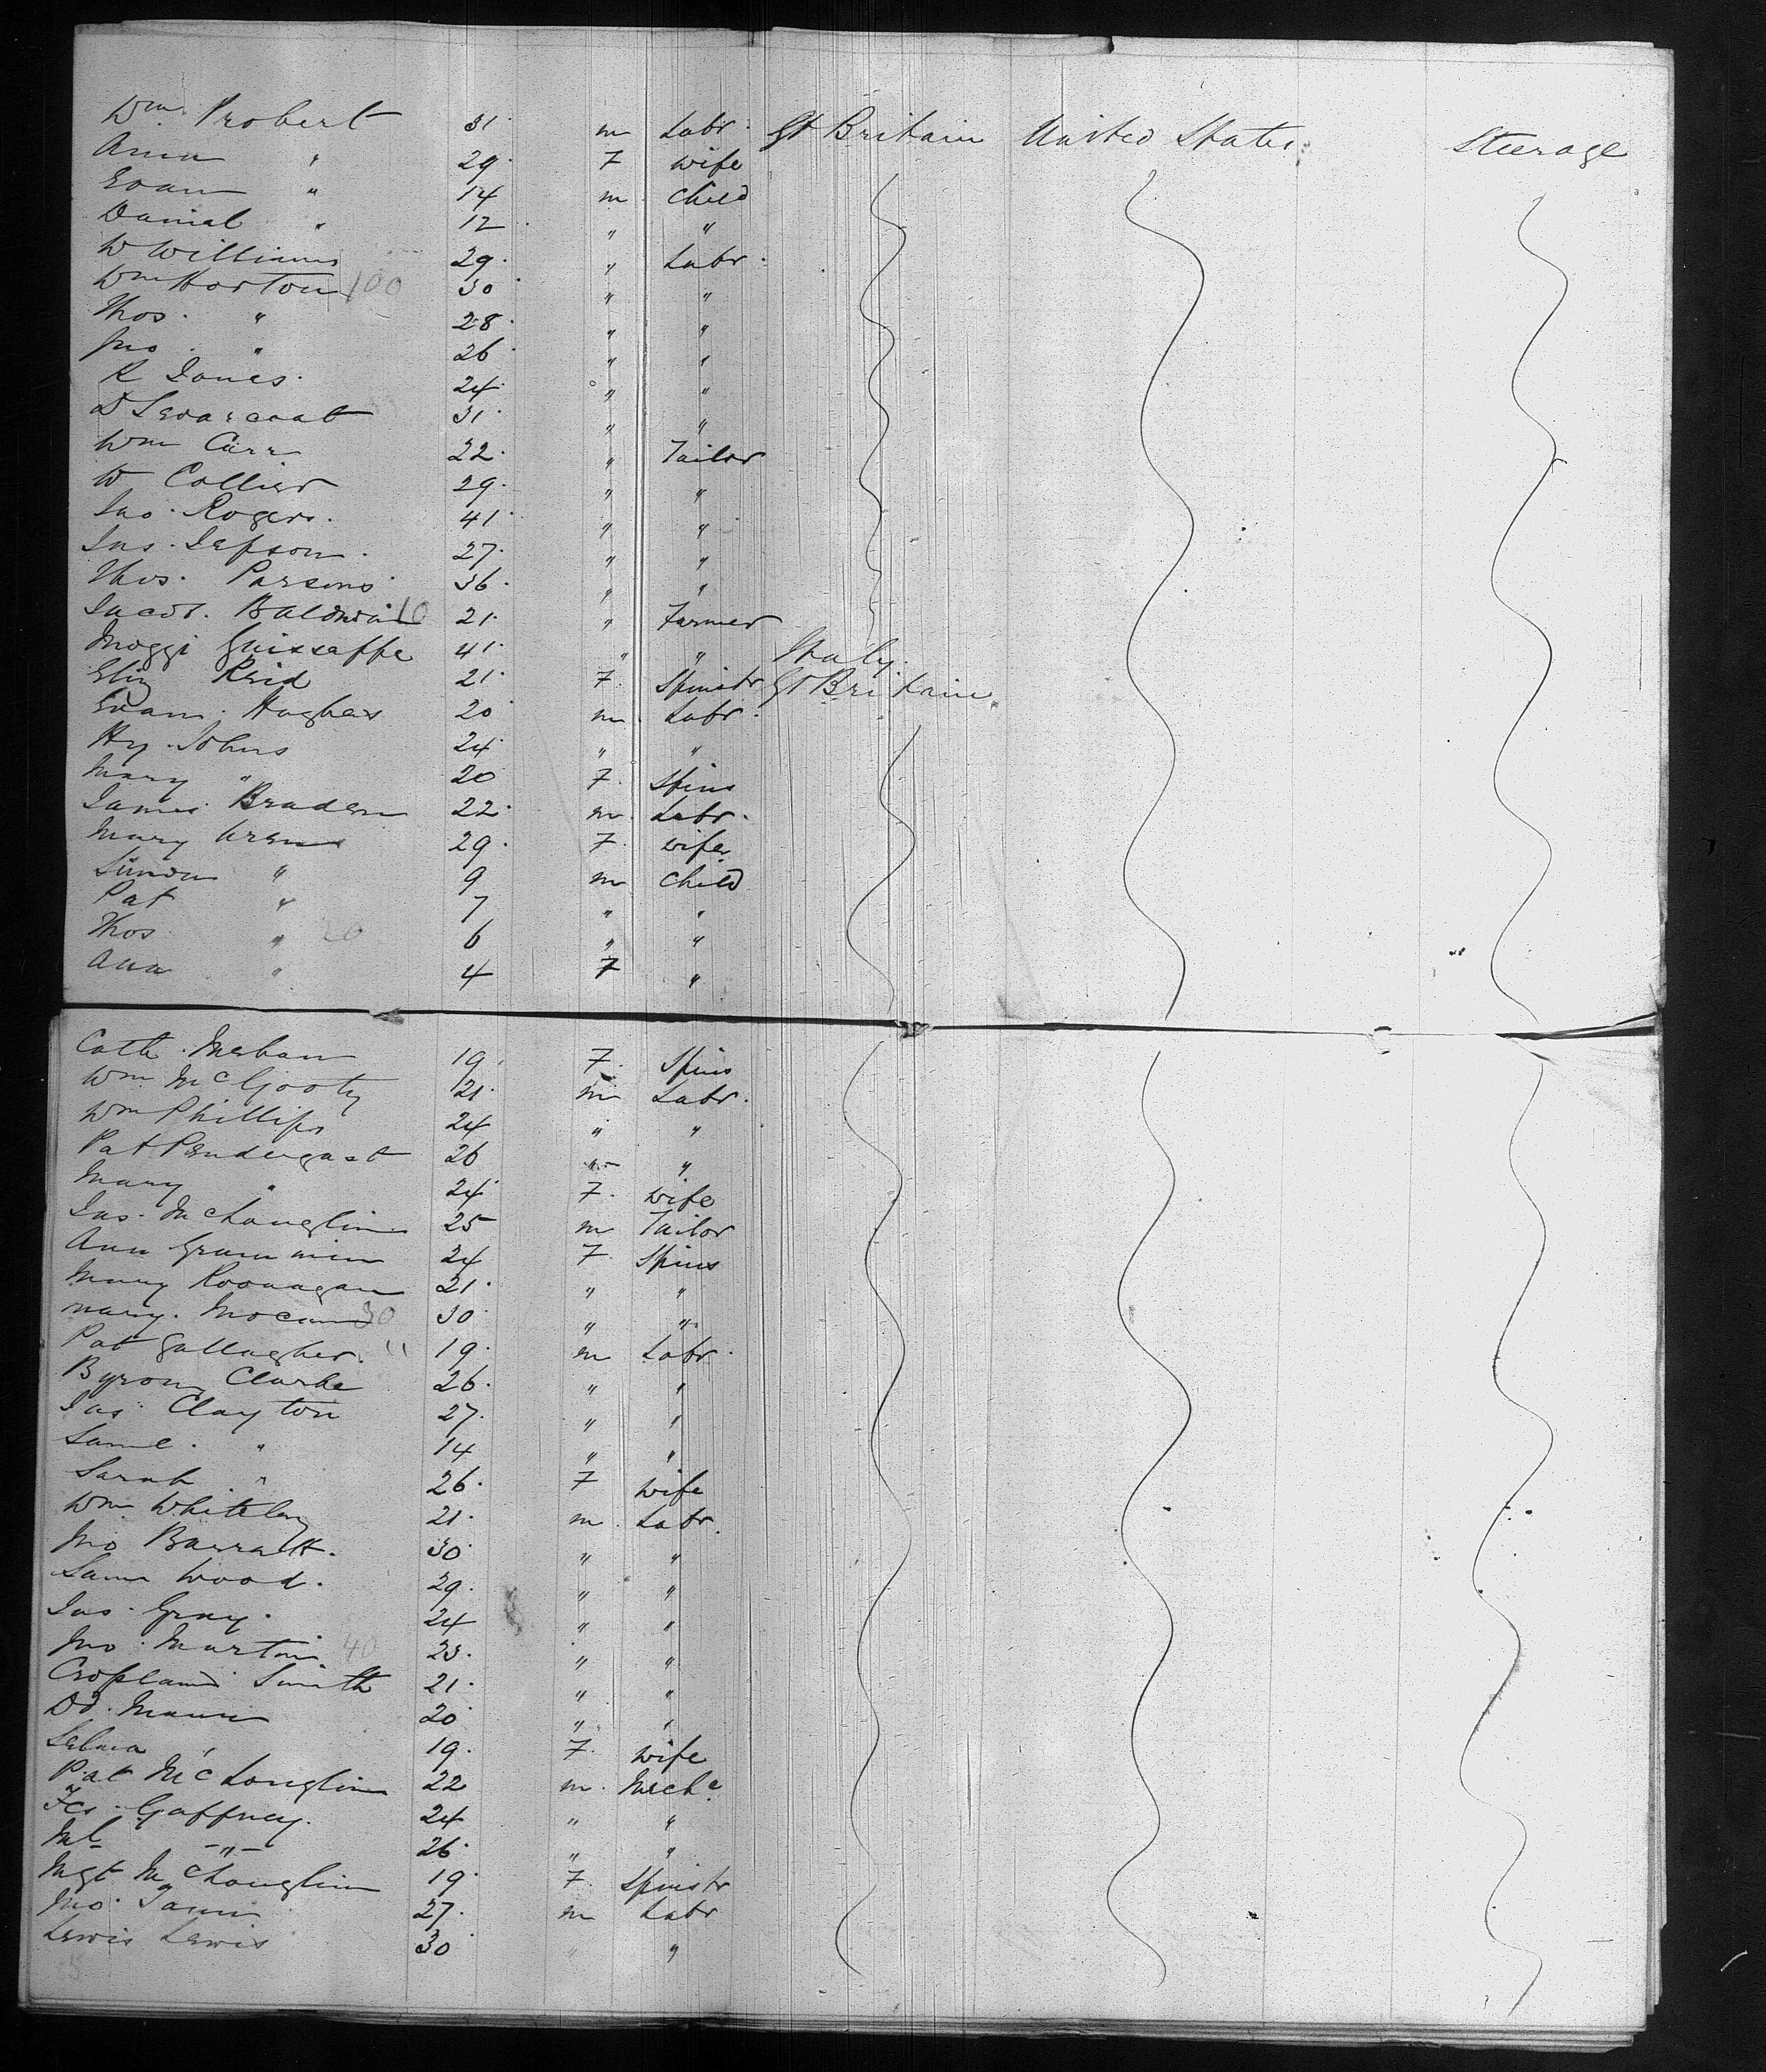 Wm Probert 31 m Labr. Gt Britain United States Steerage
Ann " 29 F wife
Evan " 14 m Child
Danial " 12 " "
W Williams 29 " Labr.
Wm Horton 100 30 " "
Thos. " 28 " "
Jno. " 26 " "
R Jones 24 " "
D 31 " "
Wm Carr 22 " Tailor
W Collier 29 " "
Jas. Rogers. 41 " "
Jas. Jepson. 27 " "
Thos. Parsons 36 " "
Jacob. Baldwin 10 21 " Farmer
Moggi Guissaffe 41 " " Italy.
Eliz Reid 21 F Spinstr Gt Britain
Evan. Hughes 20 m Labr.
Hy. Johns 24 " "
Mary " 20 F. Spins
James Braden 22 m. Labr.
Mary 29 F. wife
" 9 m Child
Pat " 7 " "
Thos " 20 6 " "
Ann " 4 F "
Cath. Mehan 19 F. Spins
Wm McGooty 21 m Labr.
Wm Phillips 24 " "
Pat Pendergast 26 " "
Mary " 24 F. wife
Jas. McLoughlin 25 m Tailor
Ann 24 F. Spins
Mary 21 " "
Mary. 30 30 " "
Pat Gallagher. " 19 m Labr.
Byron Clarke 26 " "
Jas. Clayton 27 " "
Saml. " 14 " "
Sarah " 26 F wife
Wm Whiteley 21 m. Labr.
Jno Barratt. 30 " "
Saml Wood. 29 " "
Jas. Gray. 24 " "
Jno. Martin 40 23 " "
Cropland Smith 21 " "
Dd. Mann 20 " "
Selina " 19 F. wife
Pat McLoughlin 22 m. Mechc
Fcs. Gaffney. 24 " "
Ml " 26 " "
Mgt McLoughlin 19 F. Spinstr
Jno. 27 m Labr
Lewis Lewis 30 " "